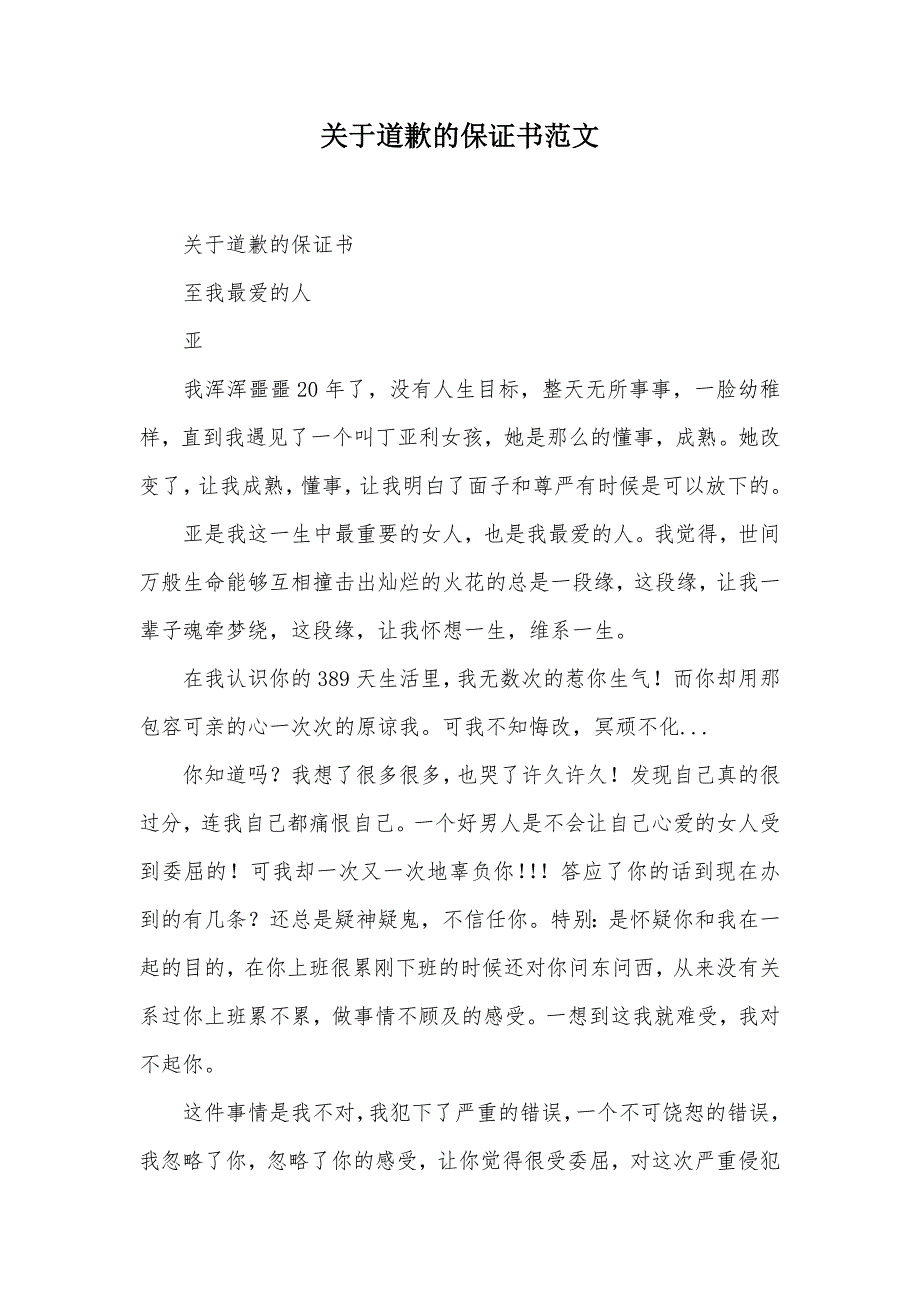 关于道歉的保证书范文
关于道歉的保证书
至我最爱的人
亚
我浑浑噩噩20年了，没有人生目标，整天无所事事，一脸幼稚
样，直到我遇见了一个叫丁亚利女孩，她是那么的懂事，成熟。她改
变了，让我成熟，懂事，让我明白了面子和尊严有时候是可以放下的。
亚是我这一生中最重要的女人，也是我最爱的人。我觉得，世间
万般生命能够互相撞击出灿烂的火花的总是一段缘，这段缘，让我一
辈子魂牵梦绕，这段缘，让我怀想一生，维系一生。
在我认识你的389天生活里，我无数次的惹你生气！而你却用那
包容可亲的心一次次的原谅我。可我不知悔改，冥顽不化...
你知道吗？我想了很多很多，也哭了许久许久！发现自己真的很
过分，连我自己都痛恨自己。一个好男人是不会让自己心爱的女人受
到委屈的！可我却一次又一次地辜负你！！！答应了你的话到现在办
到的有几条？还总是疑神疑鬼，不信任你。特别：是怀疑你和我在一
起的目的，在你上班很累刚下班的时候还对你问东问西，从来没有关
系过你上班累不累，做事情不顾及的感受。一想到这我就难受，我对
不起你。
这件事情是我不对，我犯下了严重的错误，一个不可饶恕的错误，
我忽略了你，忽略了你的感受，让你觉得很受委屈，对这次严重侵犯